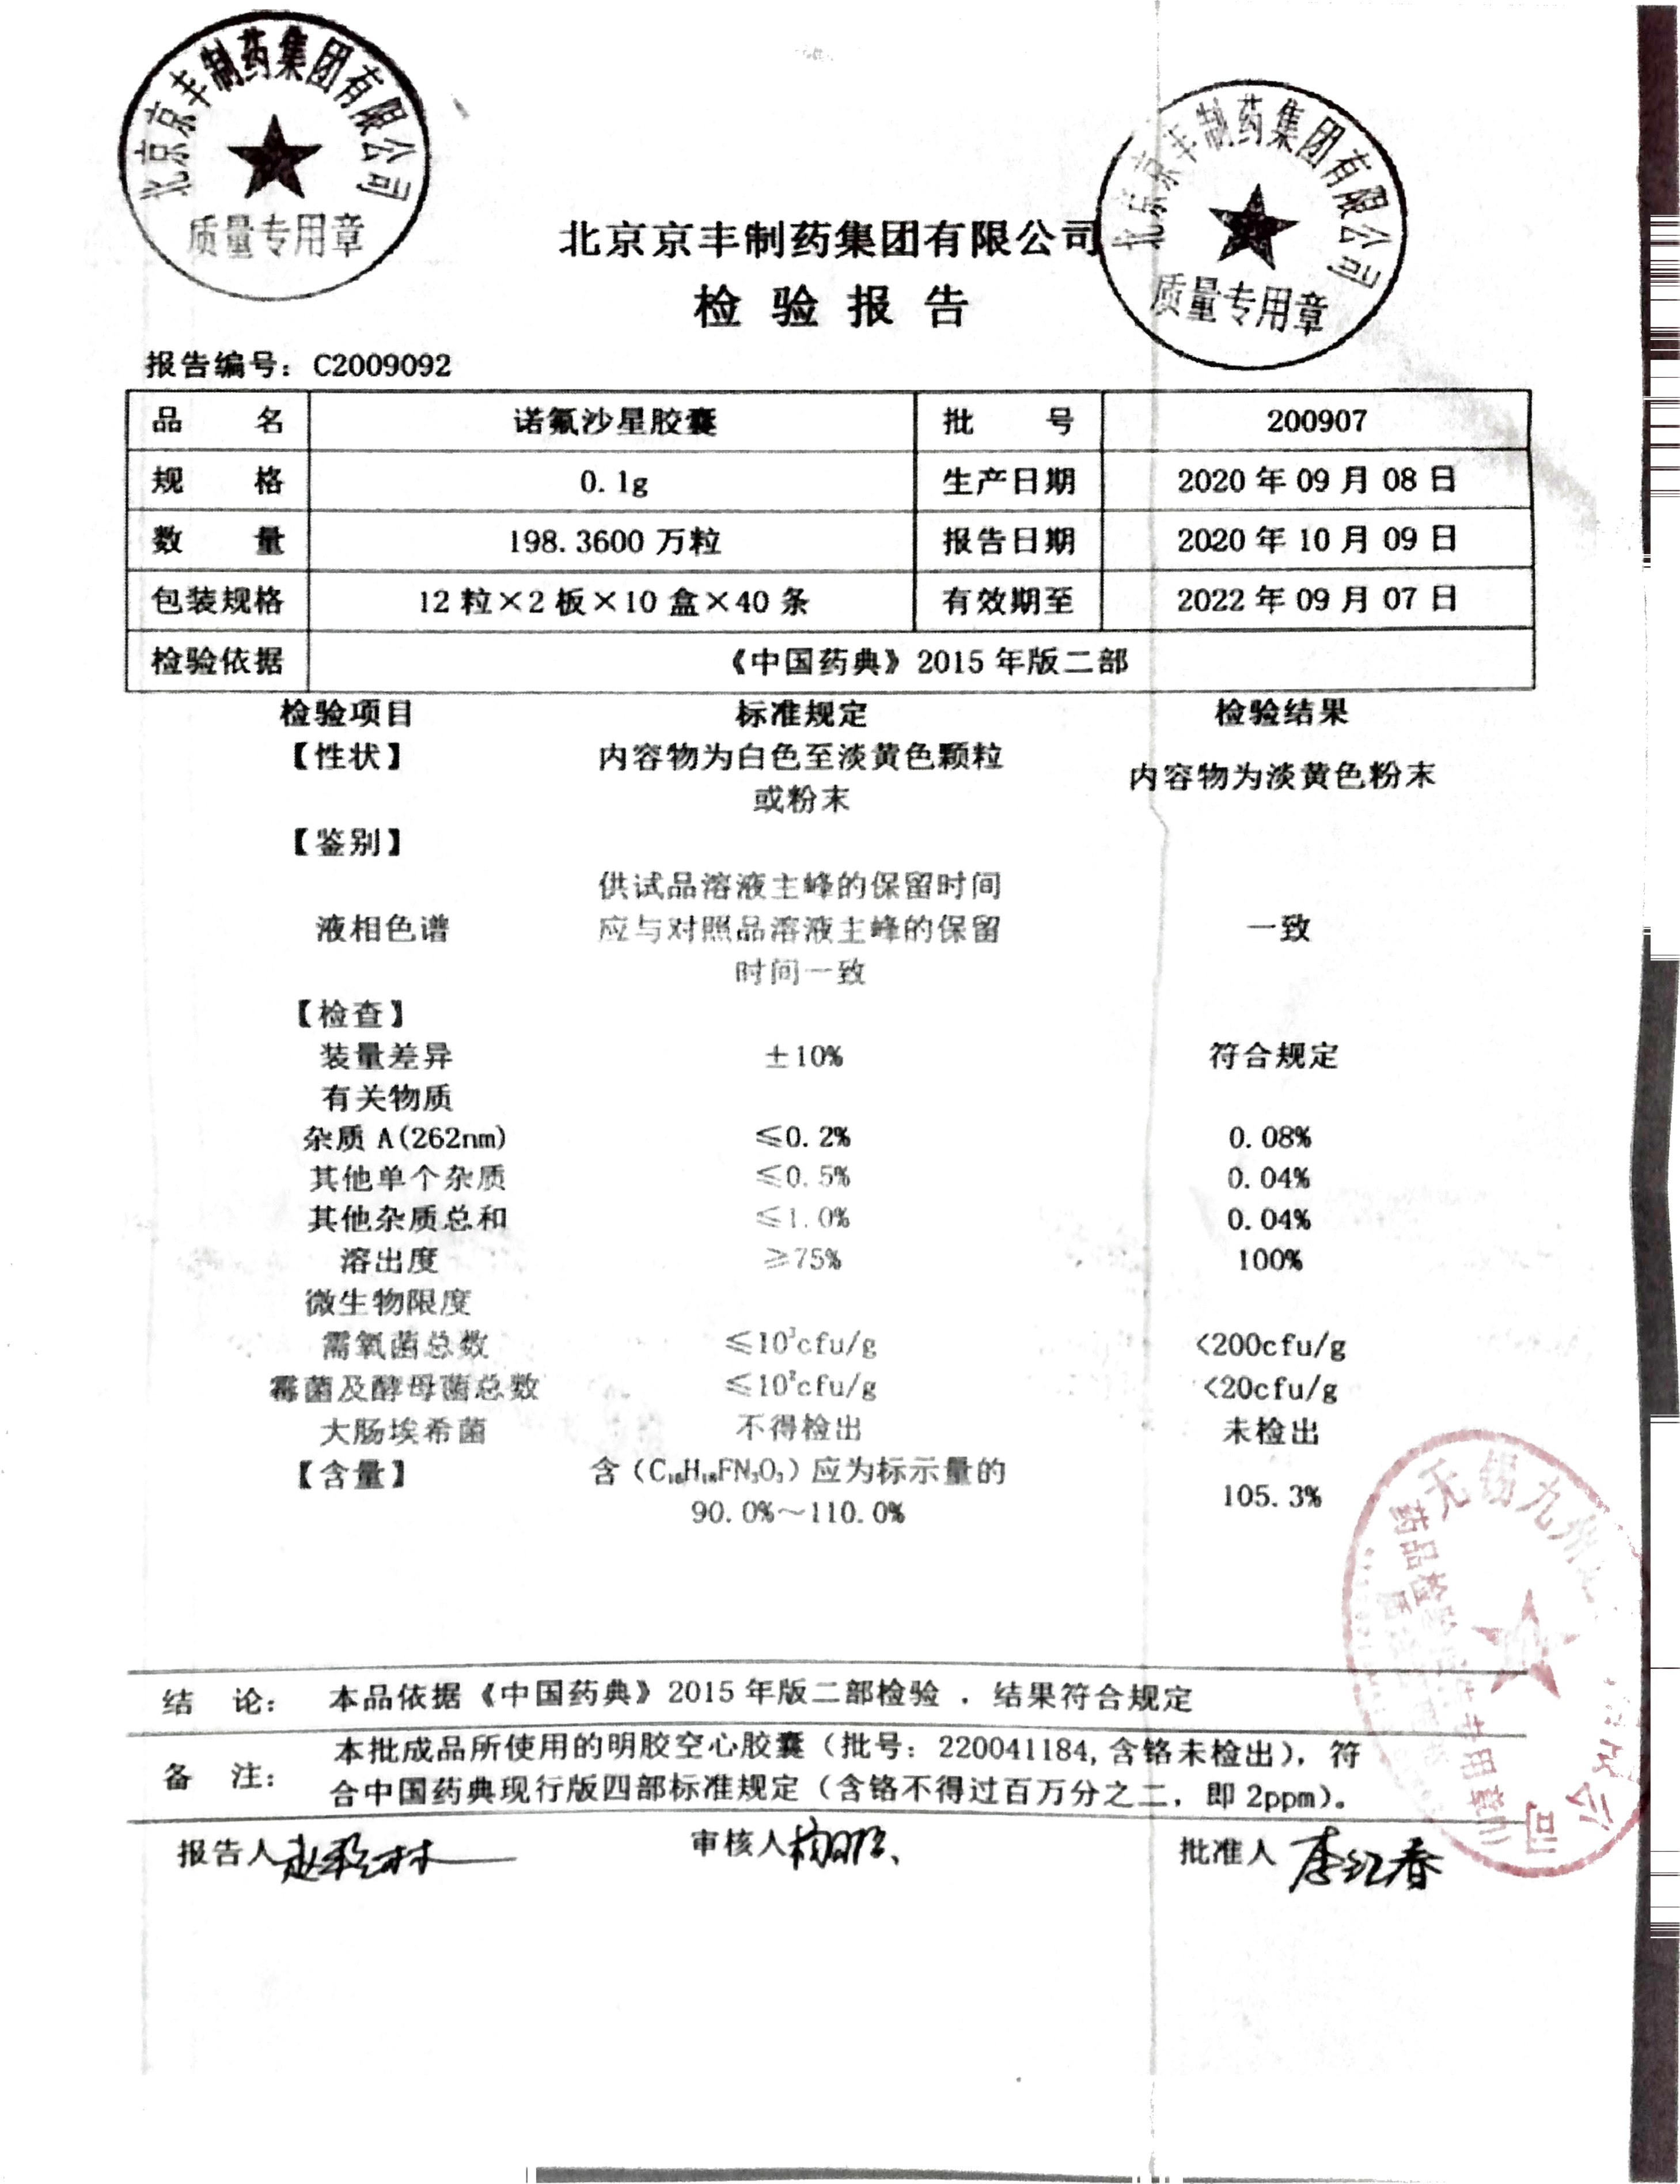 北京京丰制药集团有限公司
质量专用章
北京京丰制药集团有限公司
质量专用章
北京京丰制药集团有限公司
检验报告
报告编号：C2009092
品名 诺氟沙星胶囊 批号 200907
规格 0.1g 生产日期 2020年09月08日
数量 198.3600万粒 报告日期 2020年10月09日
包装规格 12粒×2板×10盒×40条 有效期至 2022年09月07日
检验依据 《中国药典》2015年版二部
检验项目 标准规定 检验结果
【性状】 内容物为白色至淡黄色颗粒 内容物为淡黄色粉末
或粉末
【鉴别】
供试品溶液主峰的保留时间
液相色谱 应与对照品溶液主峰的保留 一致
时间一致
【检查】
装量差异 ±10% 符合规定
有关物质
杂质A(262nm) ≤0.2% 0.08%
其他单个杂质 ≤0.5% 0.04%
其他杂质总和 ≤1.0% 0.04%
溶出度 ≥75% 100%
微生物限度
需氧菌总数 ≤10³cfu/g <200cfu/g
霉菌及酵母菌总数 ≤10²cfu/g <20cfu/g
大肠埃希菌 不得检出 未检出
【含量】 含（C₁₆H₁₈FN₃O₃）应为标示量的 105.3%
90.0%～110.0%
无锡九州
公司
药品检验
专用章
结论： 本品依据《中国药典》2015年版二部检验，结果符合规定
备注： 本批成品所使用的明胶空心胶囊（批号：220041184,含铬未检出），符
合中国药典现行版四部标准规定（含铬不得过百万分之二，即2ppm）。
报告人 审核人 批准人 李红香